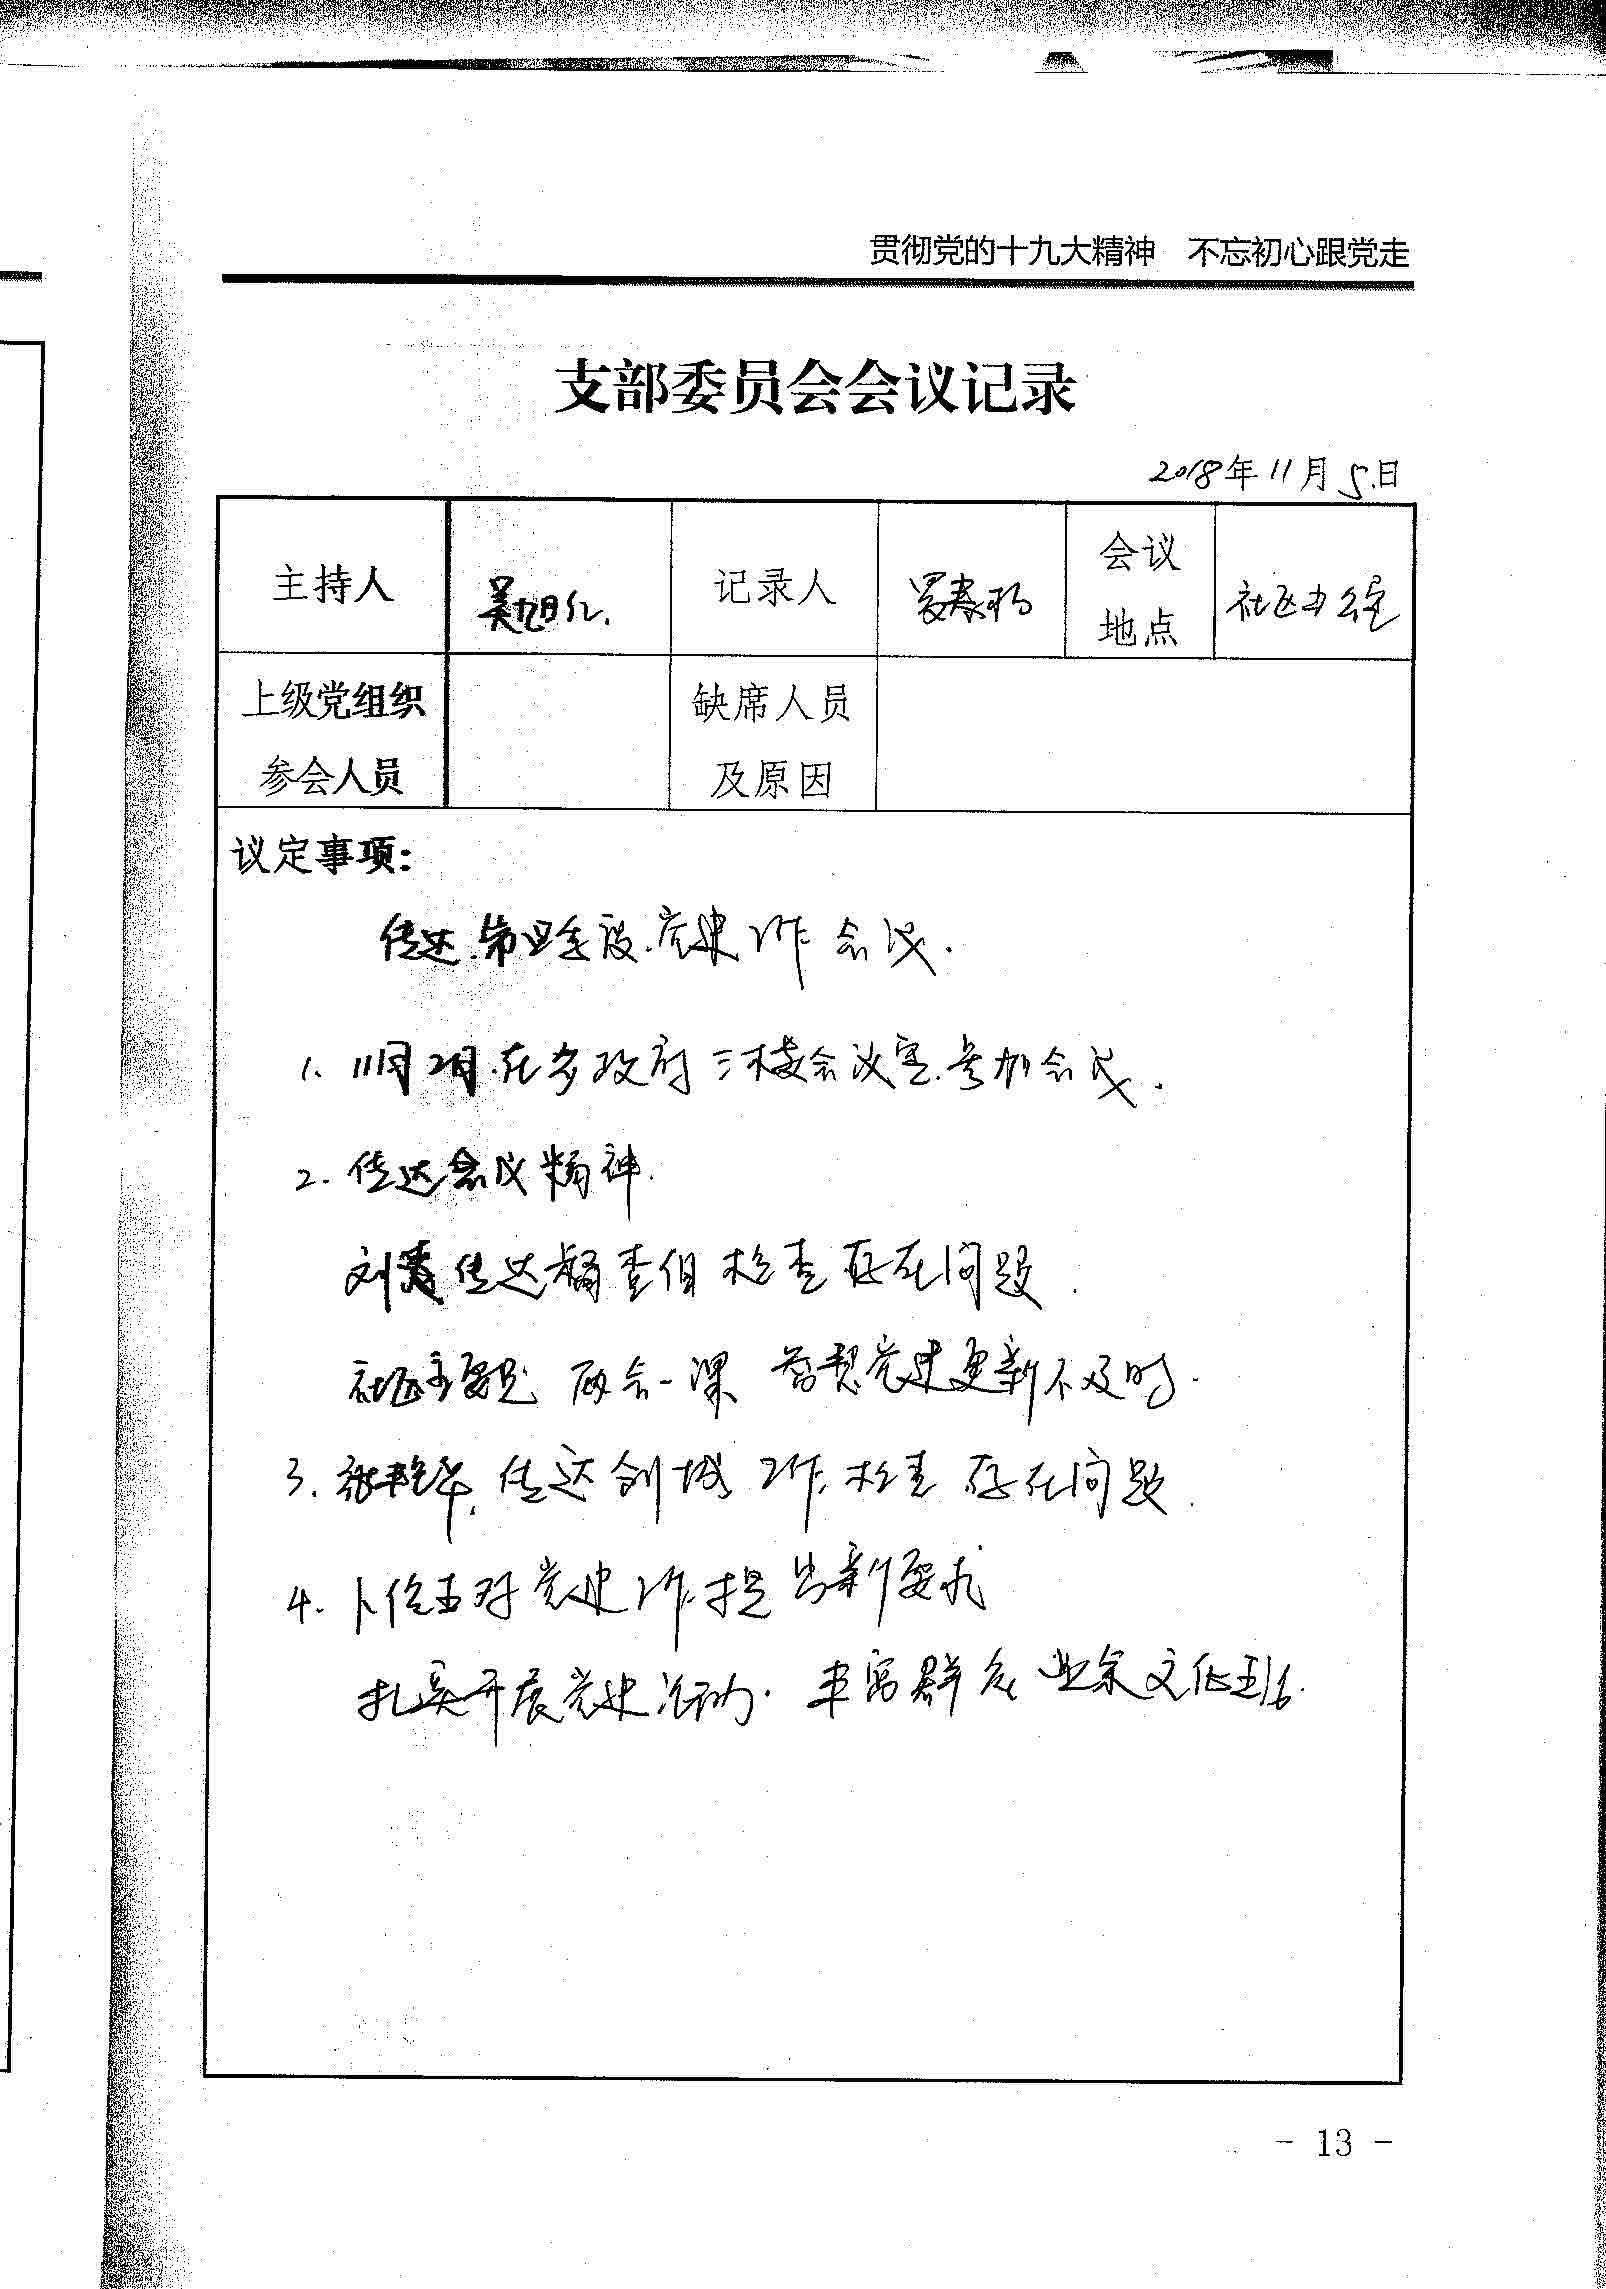 贯彻党的十九大精神　不忘初心跟党走
支部委员会会议记录
2018年11月5日
主持人 吴旭仁 记录人 会议地点 社区办公室
上级党组织参会人员 缺席人员及原因
议定事项:
传达第四季度党建工作会议.
1. 11月2日在乡政府三楼会议室参加会议.
2. 传达会议精神.
传达督查组检查存在问题.
社区主要是 两会一课 智慧党建更新不及时.
3. 传达创城工作检查存在问题.
4. 卜位玉对党建工作提出新要求
扎实开展党建活动. 丰富群众业余文化
- 13 -